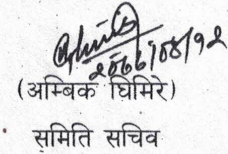 २०६६/०४/१२
(अम्बिक घिमिरे)
समिति सचिव